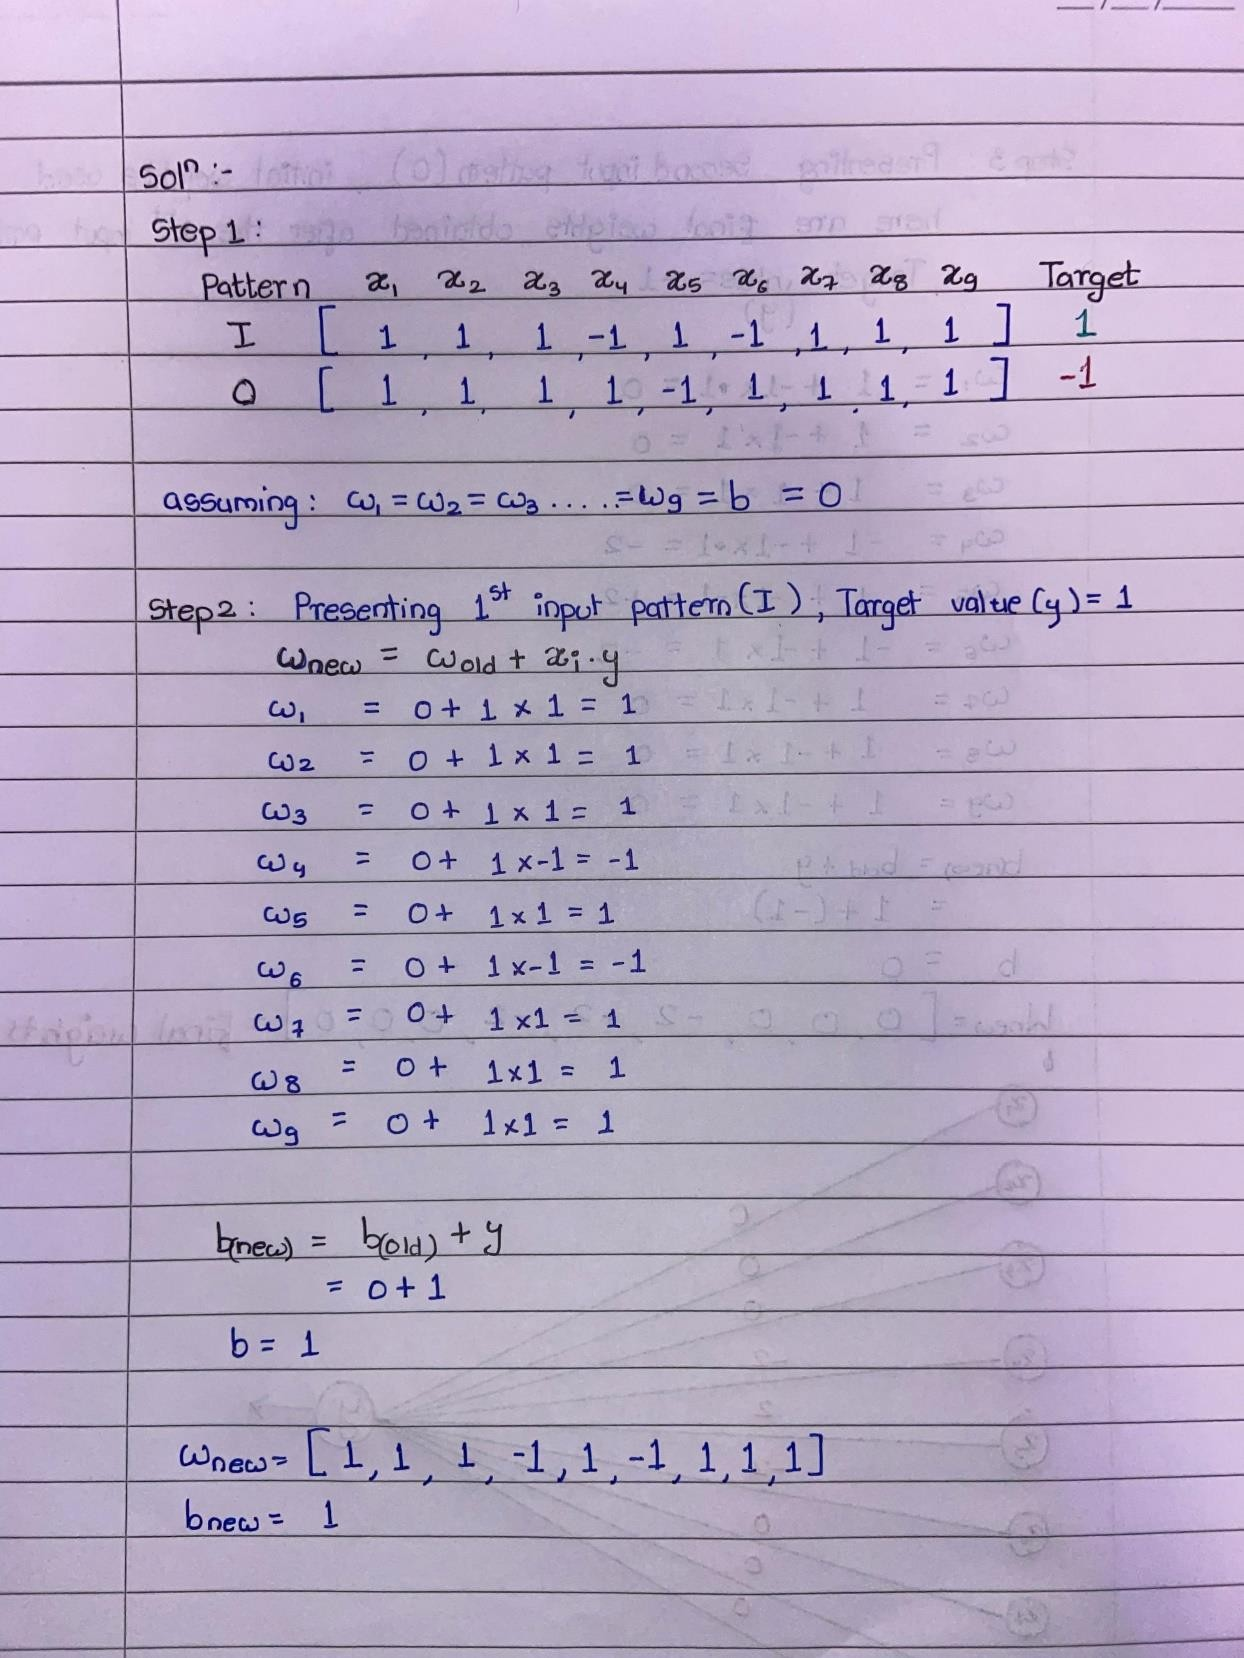 Solⁿ :-
Step 1 :
Pattern x₁ x₂ x₃ x₄ x₅ x₆ x₇ x₈ x₉ Target
I [ 1 , 1 , 1 , -1 , 1 , -1 , 1 , 1 , 1 ] 1
O [ 1 , 1 , 1 , 1 , -1 , 1 , 1 , 1 , 1 ] -1
assuming : ω₁ = ω₂ = ω₃ ..... = ω₉ = b = 0
Step 2 : Presenting 1ˢᵗ input pattern (I) , Target value (y) = 1
ωnew = ωold + xᵢ . y
ω₁ = 0 + 1 × 1 = 1
ω₂ = 0 + 1 × 1 = 1
ω₃ = 0 + 1 × 1 = 1
ω₄ = 0 + 1 × -1 = -1
ω₅ = 0 + 1 × 1 = 1
ω₆ = 0 + 1 × -1 = -1
ω₇ = 0 + 1 × 1 = 1
ω₈ = 0 + 1 × 1 = 1
ω₉ = 0 + 1 × 1 = 1
b(new) = b(old) + y
= 0 + 1
b = 1
ωnew = [ 1 , 1 , 1 , -1 , 1 , -1 , 1 , 1 , 1 ]
bnew = 1